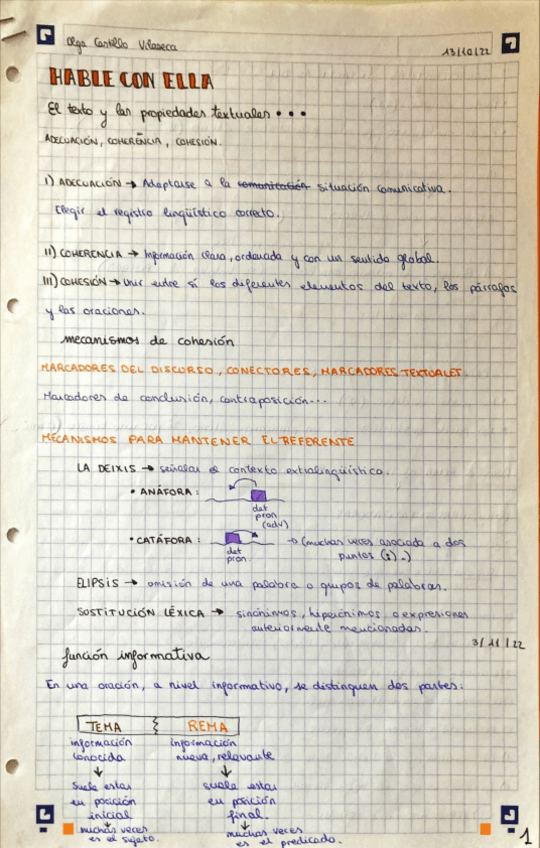 Olga Castillo Vilaseca
13/10/22
HABLE CON ELLA
El texto y las propiedades textuales...
ADECUACIÓN, COHERENCIA, COHESIÓN.
I) ADECUACIÓN → Adaptarse a la comunicación situación comunicativa.
Elegir el registro lingüístico correto.
II) COHERENCIA → Información clara, ordenada y con un sentido global.
III) COHESIÓN → Unir entre sí los diferentes elementos del texto, los párrafos
y las oraciones.
mecanismos de cohesión
MARCADORES DEL DISCURSO, CONECTORES, MARCADORES TEXTUALES.
Marcadores de conclusión, contraposición...
MECANISMOS PARA MANTENER EL REFERENTE
LA DEIXIS → señalar el contexto extralingüístico.
• ANÁFORA:
det
pron
(adv)
• CATÁFORA: → (muchas veces asociada a dos
puntos (:).)
det
pron.
ELIPSIS → omisión de una palabra o grupos de palabras.
SOSTITUCIÓN LÉXICA → sinónimos, hiperónimos o expresiones
anteriormente mencionadas.
3/11/22
función informativa
En una oración, a nivel informativo, se distinguen dos partes:
TEMA REMA
información información
conocida nueva, relevante
↓ ↓
suele estar suele estar
en posición en posición
inicial final.
↓ ↓
muchas veces muchas veces
es el sujeto. es el predicado.
1